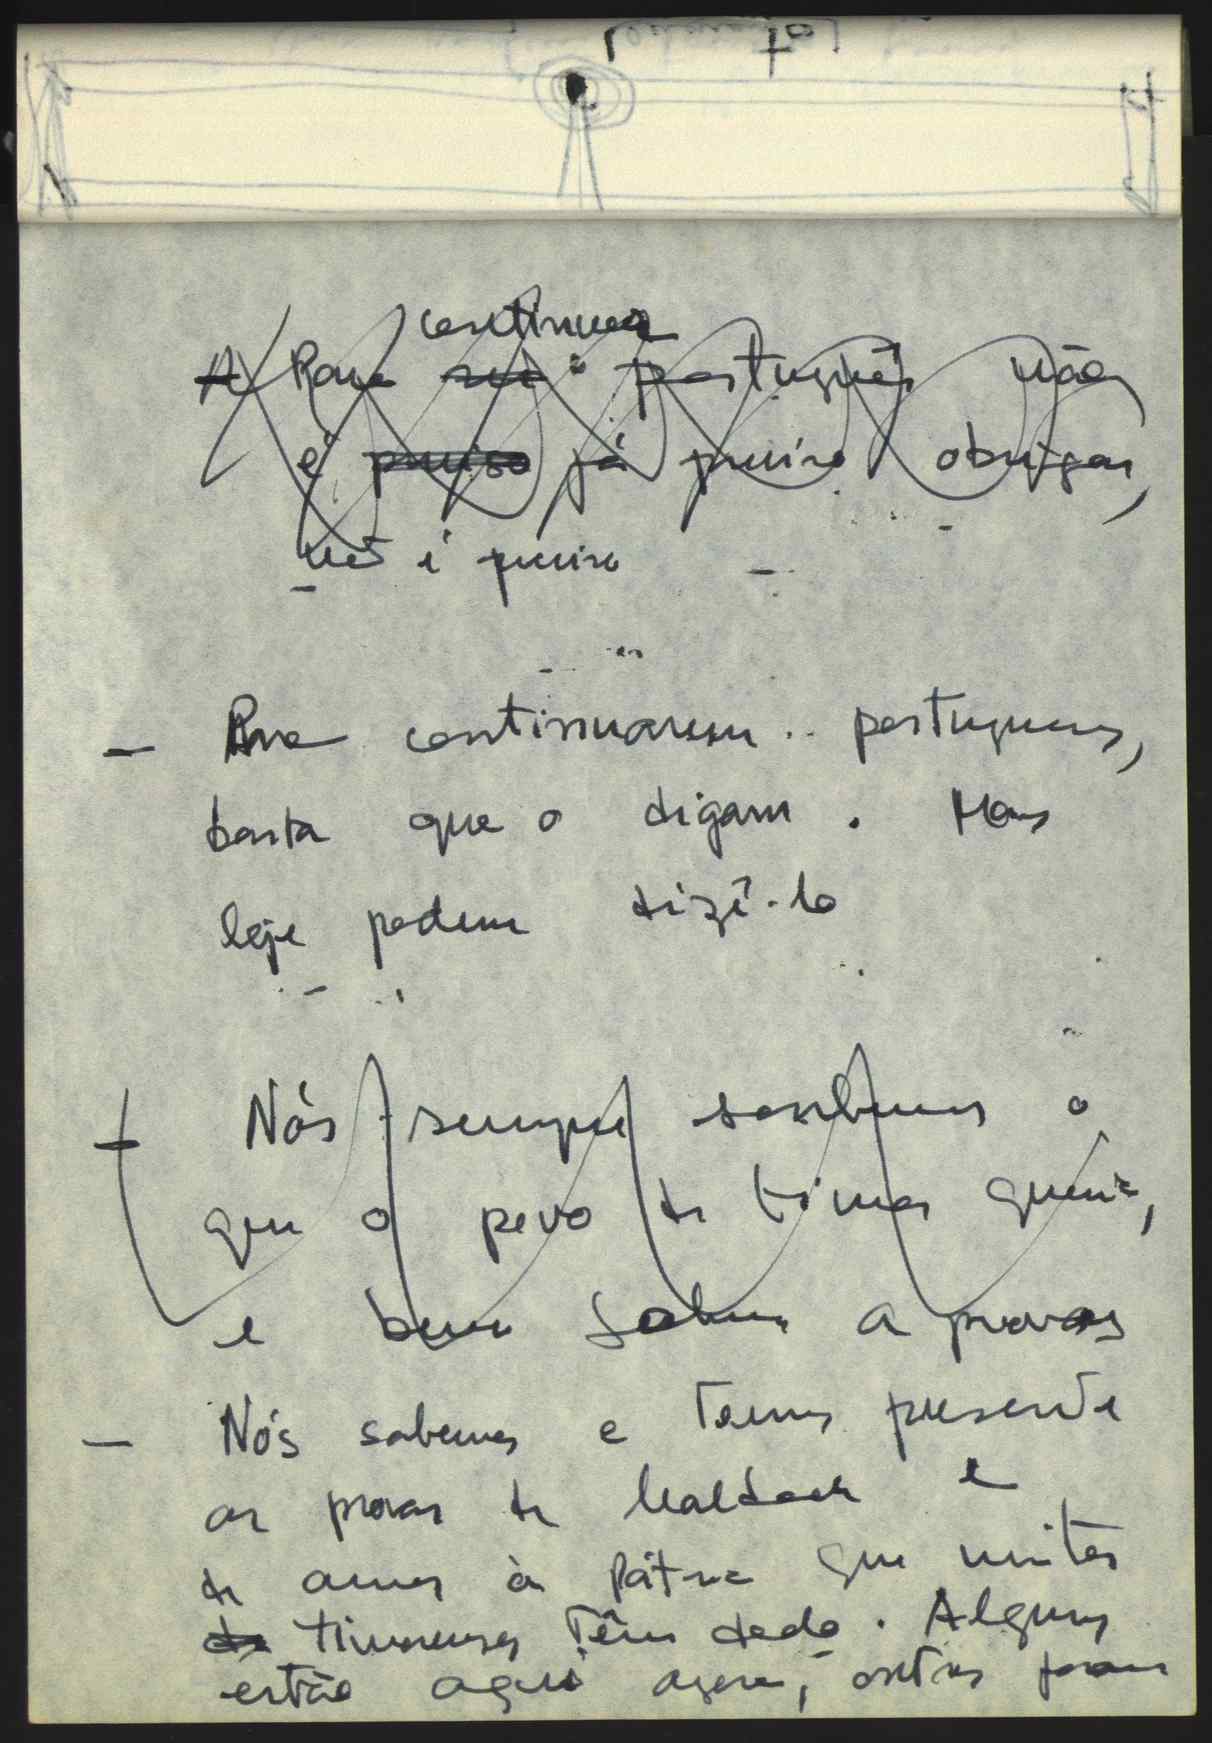 continuar
A Para ser português não
é preciso já preciso obrigar,
não é preciso
— Para continuarem portugueses,
basta que o digam. Mas
hoje podem dizê-lo
— Nós sempre soubemos o
que o povo de Timor queria,
e bem sabemos a provas
— Nós sabemos e temos presente
as provas de lealdade e
de amor à Pátria que muitos
de timorenses têm dado. Alguns
estão aqui agora, outros foram